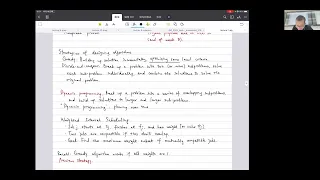 Strategies of designing algorithms
Greedy: Building up solution incrementally, optimizing some local criteria.
Divide-and-conquer: Break up a problem into two (or more) subproblems, solve
each sub-problem individually and combine the solutions to solve the
original problem.
Dynamic programming: Break up a problem into a series of overlapping subproblems
and build up solutions to larger and larger sub-problems.
• Dynamic programming = planning over time
Weighted Interval Scheduling
• Job j starts at sj, finishes at fj, and has weight (or value vj)
• Two jobs are compatible if they don't overlap.
• Goal: find the maximum weight subset of mutually compatible jobs.
Recall: Greedy algorithm works if all weights are 1.
Previous Strategy: